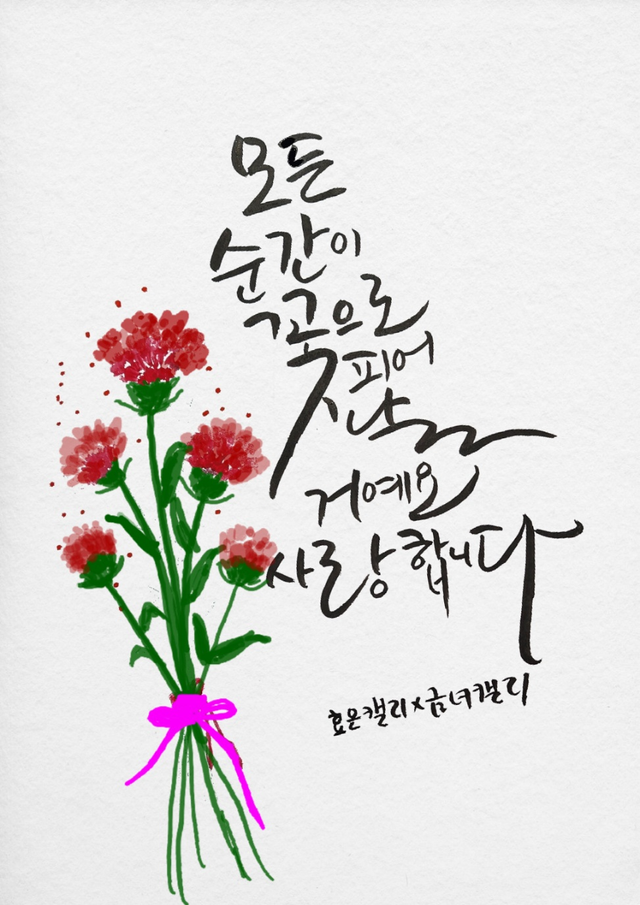 모든
순간이
꽃으로
피어
날
거예요
사랑합니다
효온캘리x금녀캘리